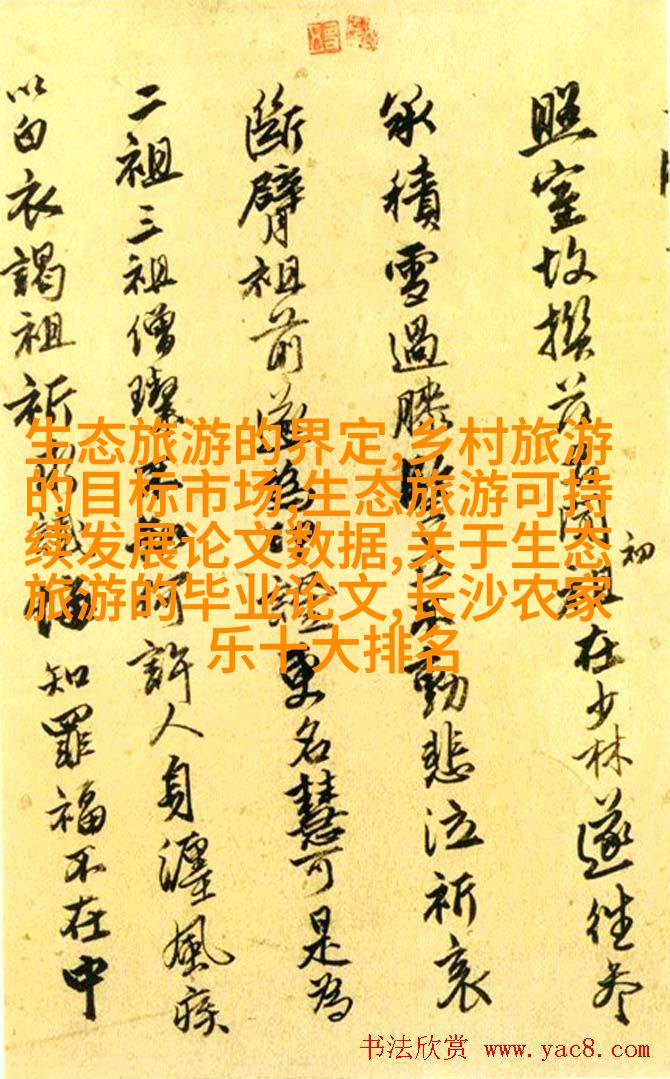 照室故撰
初
在少林遂往参
承積雪過膝
勤悲泣祈哀
断臂祖前
證更名慧可是為
二祖三祖僧璨
許人身纏風疾
以白衣謁祖祈
知罪福不在中
生态旅游的界定,乡村旅游
的目标市场,生态旅游可持
续发展论文数据,关于生态
旅游的毕业论文,长沙农家
乐十大排名
书法欣赏 www.yac8.com